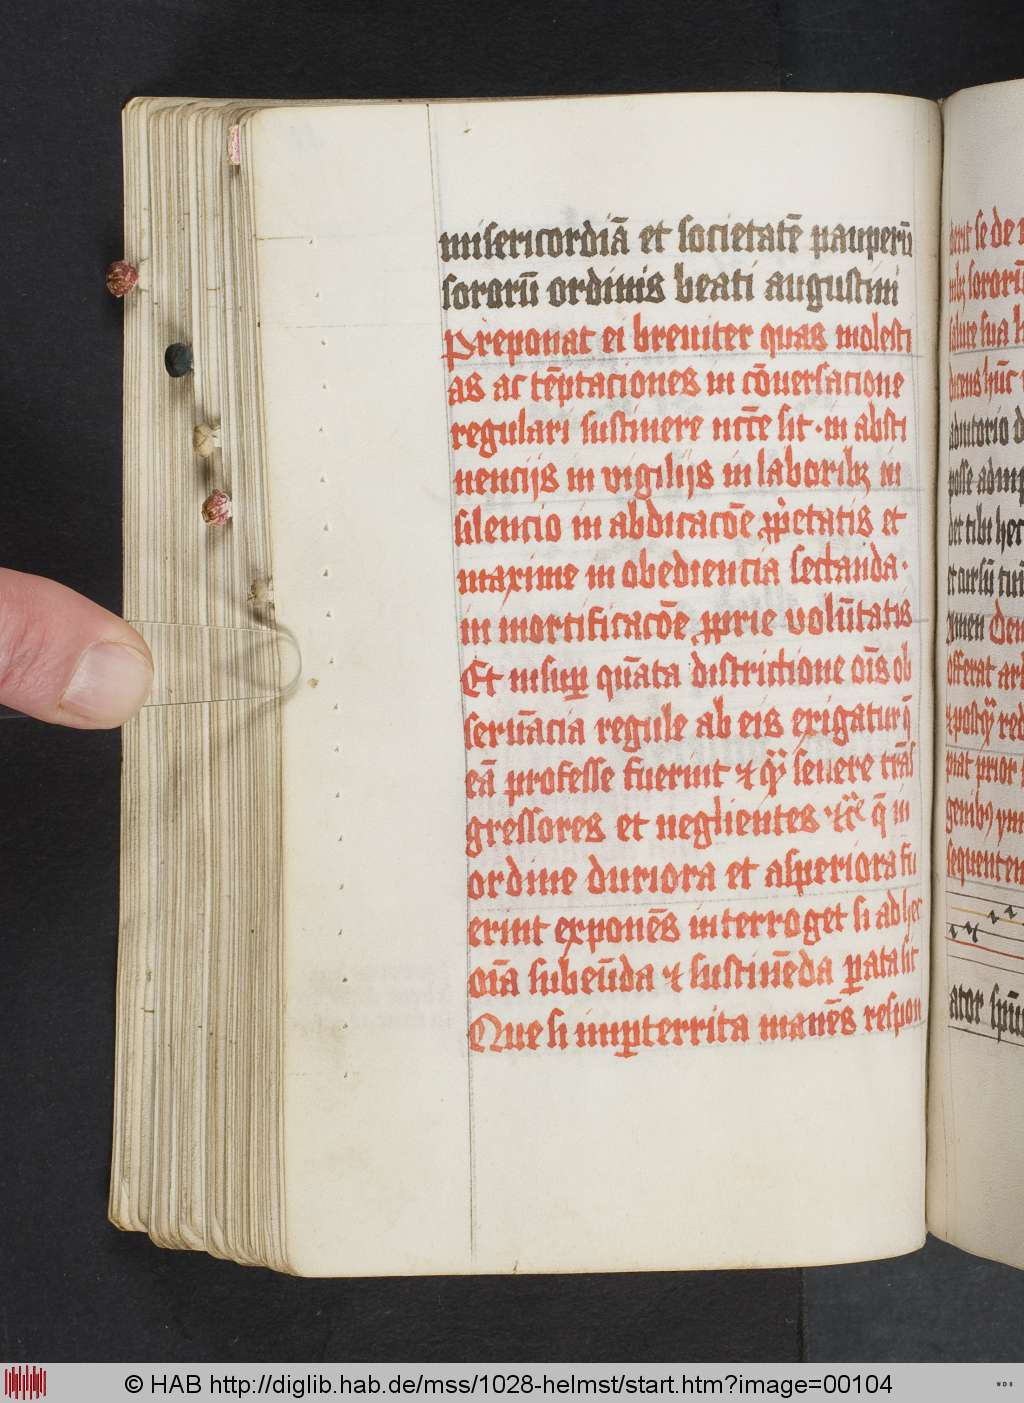 misericordiā et societatē pauperū
sororū ordinis beati augustini
Preponat ei breuiter quas molesti
as ac tēptaciones in cōuersacione
regulari sustinere nēcē sit · in absti
nencijs in vigilijs in laboribꝫ in
silencio in abdicacōe ꝓpͥetatis et
maxime in obediencia sectanda ·
in mortificacōe ꝓprie volūtatis
Et insuꝑ quāta districtione oīs ob
seruācia regule ab eis exigatur q̄
eā professe fuerint ⁊ seuere trās
gressores et neglientes q̄ in
ordine duriora et asperiora fu
erint exponēs interroget si ad hec
oīa subeūda ⁊ sustinēda ꝑata sit
Que si inꝑterrita manēs respon
se de
sororū
salute sua
dicens
adiutorio
posse
det tibi hec
et cursū tuū
amen
offerat
⁊ postqͣ
prior
sequenten
ator spūs
© HAB http://diglib.hab.de/mss/1028-helmst/start.htm?image=00104